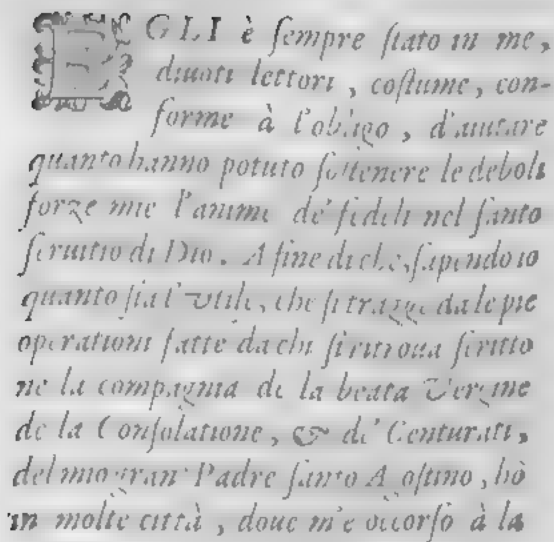 EGLI è ſempre ſtato in me,
diuoti lettori, coſtume, con-
forme à l'obligo, d'aiutare
quanto hanno potuto ſoſtenere le deboli
forze mie l'anime de' fedeli nel ſanto
ſeruitio di Dio. A fine di che, ſapendo io
quanto ſia l'vtile, che ſi tragge da le pie
operationi fatte da chi ſi ritroua ſcritto
ne la compagnia de la beata Vergine
de la Conſolatione, & de' Centurati,
del mio gran Padre ſanto Agoſtino, hò
in molte città, doue m'è occorſo à la